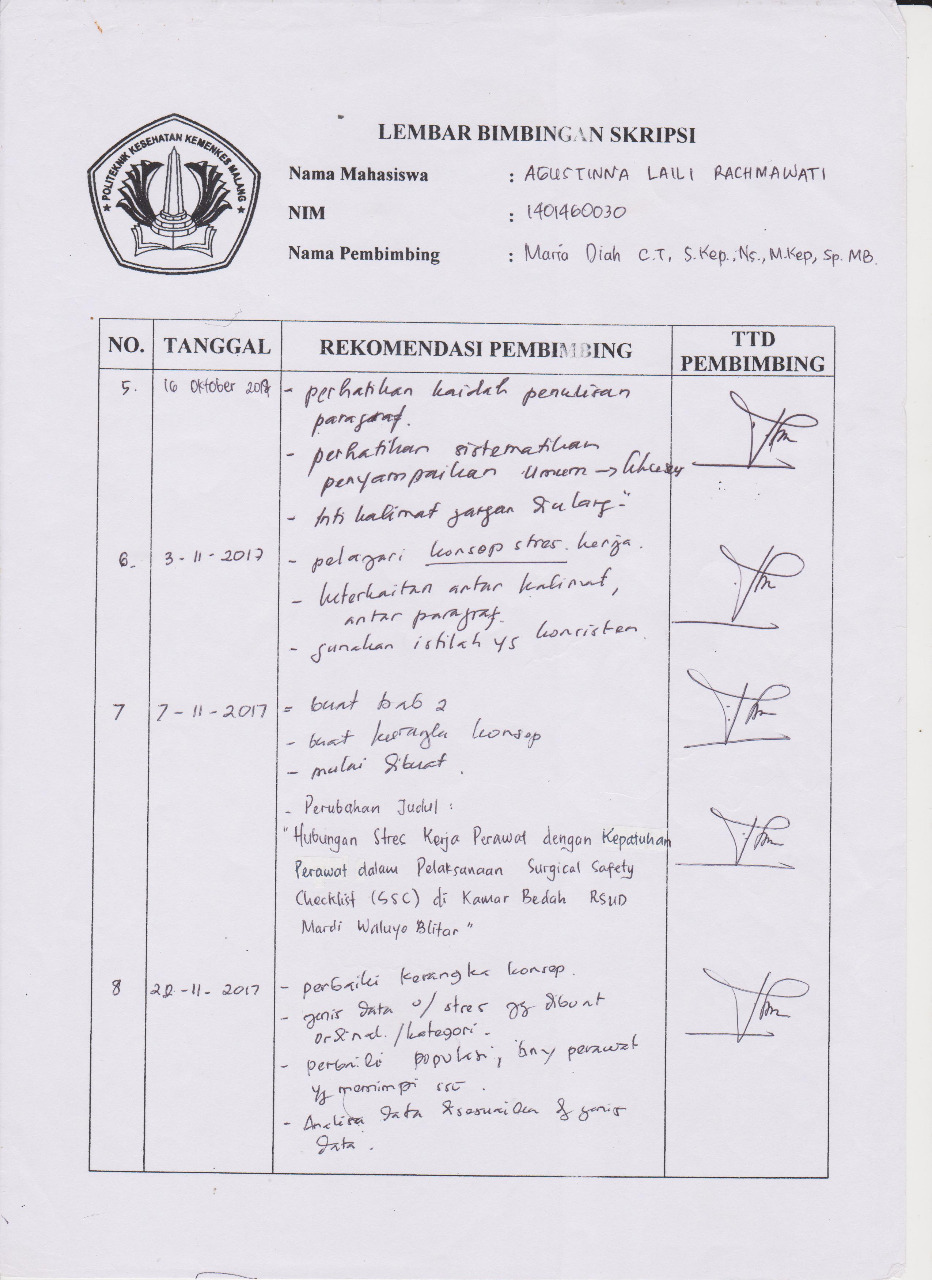 POLITEKNIK KESEHATAN KEMENKES MALANG
LEMBAR BIMBINGAN SKRIPSI
Nama Mahasiswa : AGUSTINNA LAILI RACHMAWATI
NIM : 1401460030
Nama Pembimbing : Maria Diah C.T, S.Kep.,Ns., M.Kep, Sp. MB.
NO. TANGGAL REKOMENDASI PEMBIMBING TTD PEMBIMBING
5. 16 Oktober - perhatikan kaidah penulisan
paragraf.
- perhatikan sistematikan
penyampaikan Umum → khusus
- Inti kalimat jangan diulang-"
6. 3-11-2017 - pelajari konsep stres. kerja.
- keterkaitan antar kalimat,
antar paragraf.
- gunakan istilah yg konsisten.
7 7-11-2017 = buat bab 2
- buat kerangka konsep
- mulai dibuat.
- Perubahan Judul :
"Hubungan Stres Kerja Perawat dengan Kepatuhan
Perawat dalam Pelaksanaan Surgical Safety
Checklist (SSC) di Kamar Bedah RSUD
Mardi Waluyo Blitar"
8 -11-2017 - perbaiki kerangka konsep.
- jenis data u/ stres yg dibuat
ordinal./kategori.
- perbaiki populasi, perawat
yg memimpi SSC.
- Analisa data disesuaikan dg jenis
data.